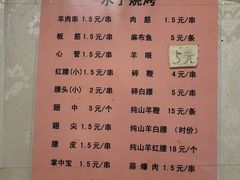 永宁烧烤
羊肉串 1.5元/串 肉筋 1.5元/串
板筋 1.5元/串 麻布鱼 5元/条
心管 1.5元/串 羊眼 5元
红腰(小) 2元/串 碎鞭 4元/串
腰头(小) 2元/串 碎白腰 5元/串
翅中 5元/个 纯山羊鞭 15元/根
翅尖 1.5元/串 纯山羊白腰 (时价)
腰皮 1.5元/串 纯山羊红腰 18元/个
掌中宝 1.5元/串 蒜爆肉 1.5元/串